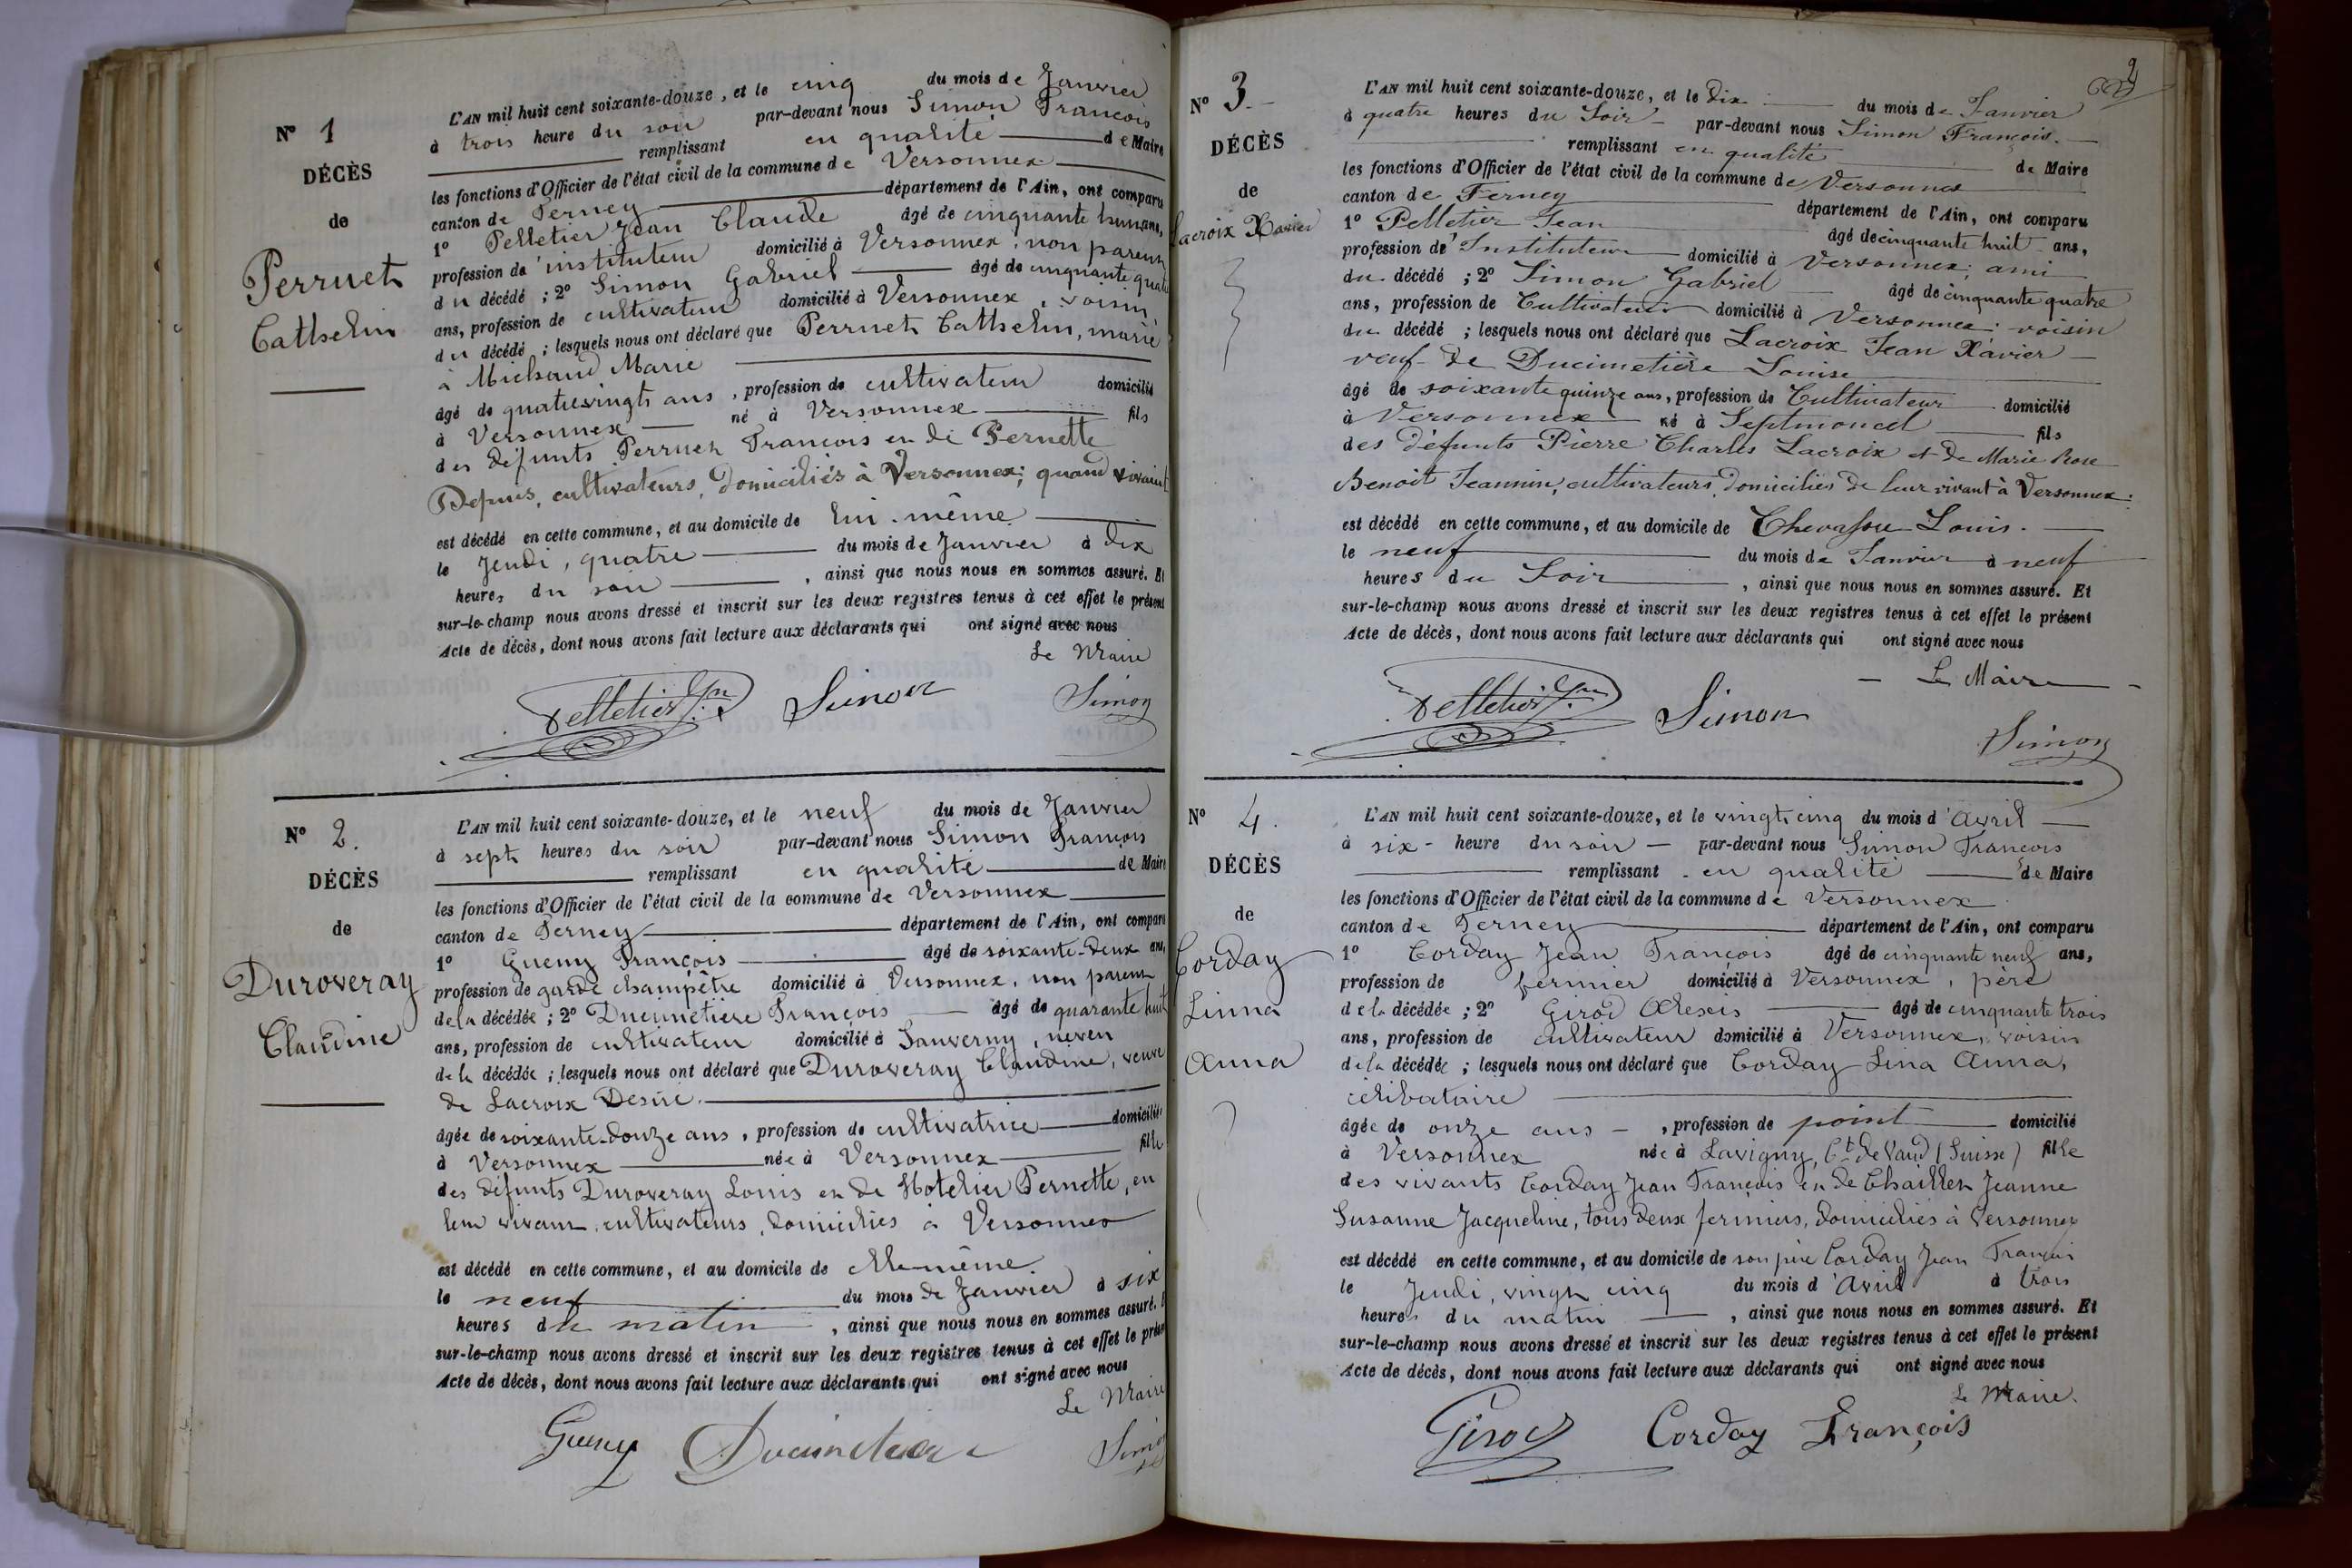 N° 1
DÉCÈS
de
Perruet
Cathelin
L'AN mil huit cent soixante-douze, et le cinq du mois de Janvier
à trois heure du soir par-devant nous Simon François
remplissant en qualité de Maire
les fonctions d'Officier de l'état civil de la commune de Versonnex
canton de Ferney département de l'Ain, ont comparu
1° Pelletier Jean Claude âgé de cinquante huit ans,
profession de instituteur domicilié à Versonnex, non parent
du décédé ; 2° Simon Gabriel âgé de cinquante quatre
ans, profession de cultivateur domicilié à Versonnex, voisin,
du décédé ; lesquels nous ont déclaré que Perruet Cathelin, marié
à Michaud Marie
âgé de quatrevingts ans, profession de cultivateur domicilié
à Versonnex né à Versonnex fils
des défunts Perruet François et de Pernette
Depuis, cultivateurs, domiciliés à Versonnex; quand vivaient
est décédé en cette commune, et au domicile de lui-même
le Jeudi, quatre du mois de Janvier à dix
heures du soir, ainsi que nous nous en sommes assuré. Et
sur-le-champ nous avons dressé et inscrit sur les deux registres tenus à cet effet le présent
Acte de décès, dont nous avons fait lecture aux déclarants qui ont signé avec nous
Le Maire
Pelletier Simon Simon
N° 2.
DÉCÈS
de
Duroveray
Claudine
L'AN mil huit cent soixante-douze, et le neuf du mois de Janvier
à sept heures du soir par-devant nous Simon François
remplissant en qualité de Maire
les fonctions d'Officier de l'état civil de la commune de Versonnex
canton de Ferney département de l'Ain, ont comparu
1° Gueny François âgé de soixante-deux ans,
profession de garde champêtre domicilié à Versonnex, non parent
de la décédée ; 2° Ducimetière François âgé de quarante huit
ans, profession de cultivateur domicilié à Sauverny, neveu
de la décédée ; lesquels nous ont déclaré que Duroveray Claudine, veuve
de Lacroix Désiré.
âgée de soixante-douze ans, profession de cultivatrice domiciliée
à Versonnex née à Versonnex fille
des défunts Duroveray Louis et de Hotelier Pernette, en
leur vivant, cultivateurs, domiciliés à Versonnex
est décédé en cette commune, et au domicile de elle-même.
le neuf du mois de Janvier à six
heures du matin, ainsi que nous nous en sommes assuré. Et
sur-le-champ nous avons dressé et inscrit sur les deux registres tenus à cet effet le présent
Acte de décès, dont nous avons fait lecture aux déclarants qui ont signé avec nous
Le Maire
Gueny Ducimetière Simon
2
N° 3.
DÉCÈS
de
Lacroix Xavier
L'AN mil huit cent soixante-douze, et le Dix du mois de Janvier
à quatre heures du Soir par-devant nous Simon François.
remplissant en qualité de Maire
les fonctions d'Officier de l'état civil de la commune de Versonnex
canton de Ferney département de l'Ain, ont comparu
1° Pelletier Jean âgé de cinquante huit ans,
profession de Instituteur domicilié à Versonnex; ami
du décédé ; 2° Simon Gabriel âgé de cinquante quatre
ans, profession de Cultivateur domicilié à Versonnex; voisin
du décédé ; lesquels nous ont déclaré que Lacroix Jean Xavier
veuf de Ducimetière Louise
âgé de soixante quinze ans, profession de Cultivateur domicilié
à Versonnex né à Septmoncel fils
des défunts Pierre Charles Lacroix et de Marie Rose
Benoit Jeannin, cultivateurs, domiciliés de leur vivant à Versonnex:
est décédé en cette commune, et au domicile de Chevassu Louis.
le neuf du mois de Janvier à neuf
heures du Soir, ainsi que nous nous en sommes assuré. Et
sur-le-champ nous avons dressé et inscrit sur les deux registres tenus à cet effet le présent
Acte de décès, dont nous avons fait lecture aux déclarants qui ont signé avec nous
Le Maire
Pelletier Simon Simon
N° 4.
DÉCÈS
de
Corday
Linna
Anna
L'AN mil huit cent soixante-douze, et le vingt cinq du mois d'avril
à six heure du soir par-devant nous Simon François
remplissant en qualité de Maire
les fonctions d'Officier de l'état civil de la commune de Versonnex
canton de Ferney département de l'Ain, ont comparu
1° Corday Jean François âgé de cinquante neuf ans,
profession de fermier domicilié à Versonnex, père
de la décédée ; 2° Girod Alexis âgé de cinquante trois
ans, profession de cultivateur domicilié à Versonnex, voisin
de la décédée ; lesquels nous ont déclaré que Corday Lina Anna,
célibataire
âgée de onze ans, profession de point domicilié
à Versonnex née à Lavigny, Ct de Vaud (Suisse) fille
des vivants Corday Jean François et de Chaillet Jeanne
Susanne Jacqueline, tous deux fermiers, domiciliés à Versonnex
est décédé en cette commune, et au domicile de son père Corday Jean François
le Jeudi, vingt cinq du mois d'Avril à trois
heures du matin, ainsi que nous nous en sommes assuré. Et
sur-le-champ nous avons dressé et inscrit sur les deux registres tenus à cet effet le présent
Acte de décès, dont nous avons fait lecture aux déclarants qui ont signé avec nous
Le Maire.
Girod Corday François